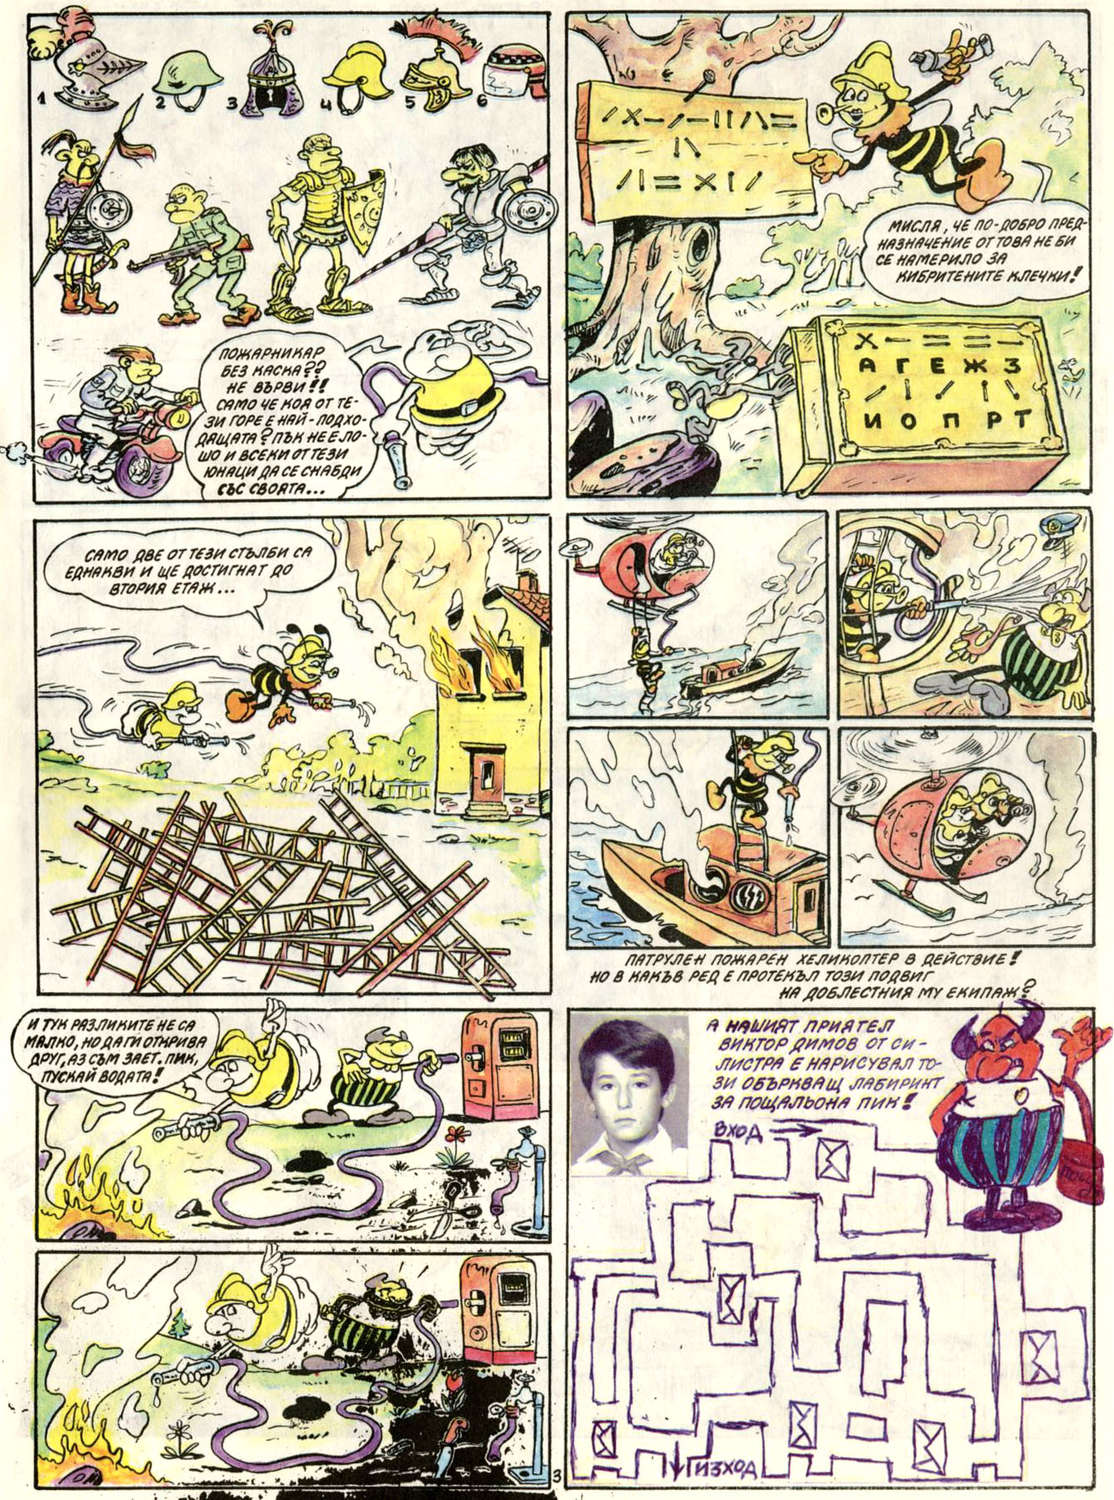 1 2 3 4 5 6
ПОЖАРНИКАР
БЕЗ КАСКА??
НЕ ВЪРВИ!!
САМО ЧЕ КОЯ ОТ ТЕ-
ЗИ ГОРЕ Е НАЙ-ПОДХО-
ДЯЩАТА? ПЪК НЕ Е ЛО-
ШО И ВСЕКИ ОТ ТЕЗИ
ЮНАЦИ ДА СЕ СНАБДИ
СЪС СВОЯТА...
МИСЛЯ, ЧЕ ПО-ДОБРО ПРЕД-
НАЗНАЧЕНИЕ ОТ ТОВА НЕ БИ
СЕ НАМЕРИЛО ЗА
КИБРИТЕНИТЕ КЛЕЧКИ!
А Г Е Ж З
И О П Р Т
САМО ДВЕ ОТ ТЕЗИ СТЪЛБИ СА
ЕДНАКВИ И ЩЕ ДОСТИГНАТ ДО
ВТОРИЯ ЕТАЖ...
ПАТРУЛЕН ПОЖАРЕН ХЕЛИКОПТЕР В ДЕЙСТВИЕ!
НО В КАКЪВ РЕД Е ПРОТЕКЪЛ ТОЗИ ПОДВИГ
НА ДОБЛЕСТНИЯ МУ ЕКИПАЖ?
И ТУК РАЗЛИКИТЕ НЕ СА
МАЛКО, НО ДА ГИ ОТКРИВА
ДРУГ, АЗ СЪМ ЗАЕТ. ПИК,
ПУСКАЙ ВОДАТА!
А НАШИЯТ ПРИЯТЕЛ
ВИКТОР ДИМОВ ОТ СИ-
ЛИСТРА Е НАРИСУВАЛ ТО-
ЗИ ОБЪРКВАЩ ЛАБИРИНТ
ЗА ПОЩАЛЬОНА ПИК!
ВХОД
ИЗХОД
3